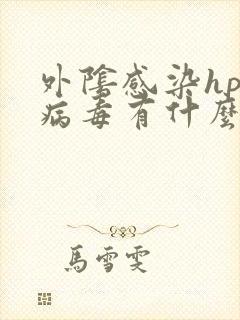 外陰感染hp
病毒有什麼
馬雪雯